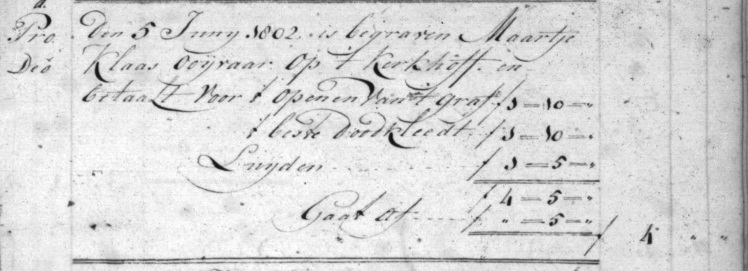 Pro Den 5 Juny 1802 is begraven Maartje
Deo Klaas Ooijvaar op 't Kerkhoff en
betaalt voor 't openen van 't graf f 1-10-"
't beste doodkleedt f 1-10-"
Luyden f 1-5-"
f 4-5-"
Gaat of f "-5-"
f 4 " "